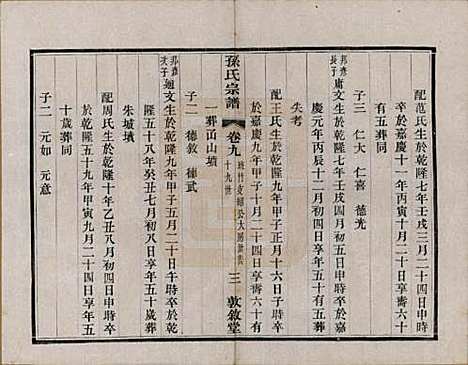 配范氏生於乾隆七年壬戌三月二十四日申時
卒於嘉慶十一年丙寅十月二十四日享壽六十
有五葬同
子三 仁大 仁喜 德光
邦彥次子
庸文生於乾隆七年壬戌四月初五日寅時卒於嘉
慶元年丙辰十二月初四日享壽五十有五葬
失考
配王氏生於乾隆九年甲子正月十六日子時卒
於嘉慶九年甲子十月二十四日享壽六十有
一葬甬山墳
孫氏宗譜
卷九
十九世
三
敦敘堂
子二 德敦 德武
邦彥次子
迥文生於乾隆九年甲子五月二十日戌時卒於乾
隆五十八年癸丑七月初八日享年五十歲葬
朱城墳
配周氏生於乾隆十年乙丑八月初四日申時卒
於乾隆五十九年甲寅九月二十日享年五
十歲葬同
子二 元如 元意